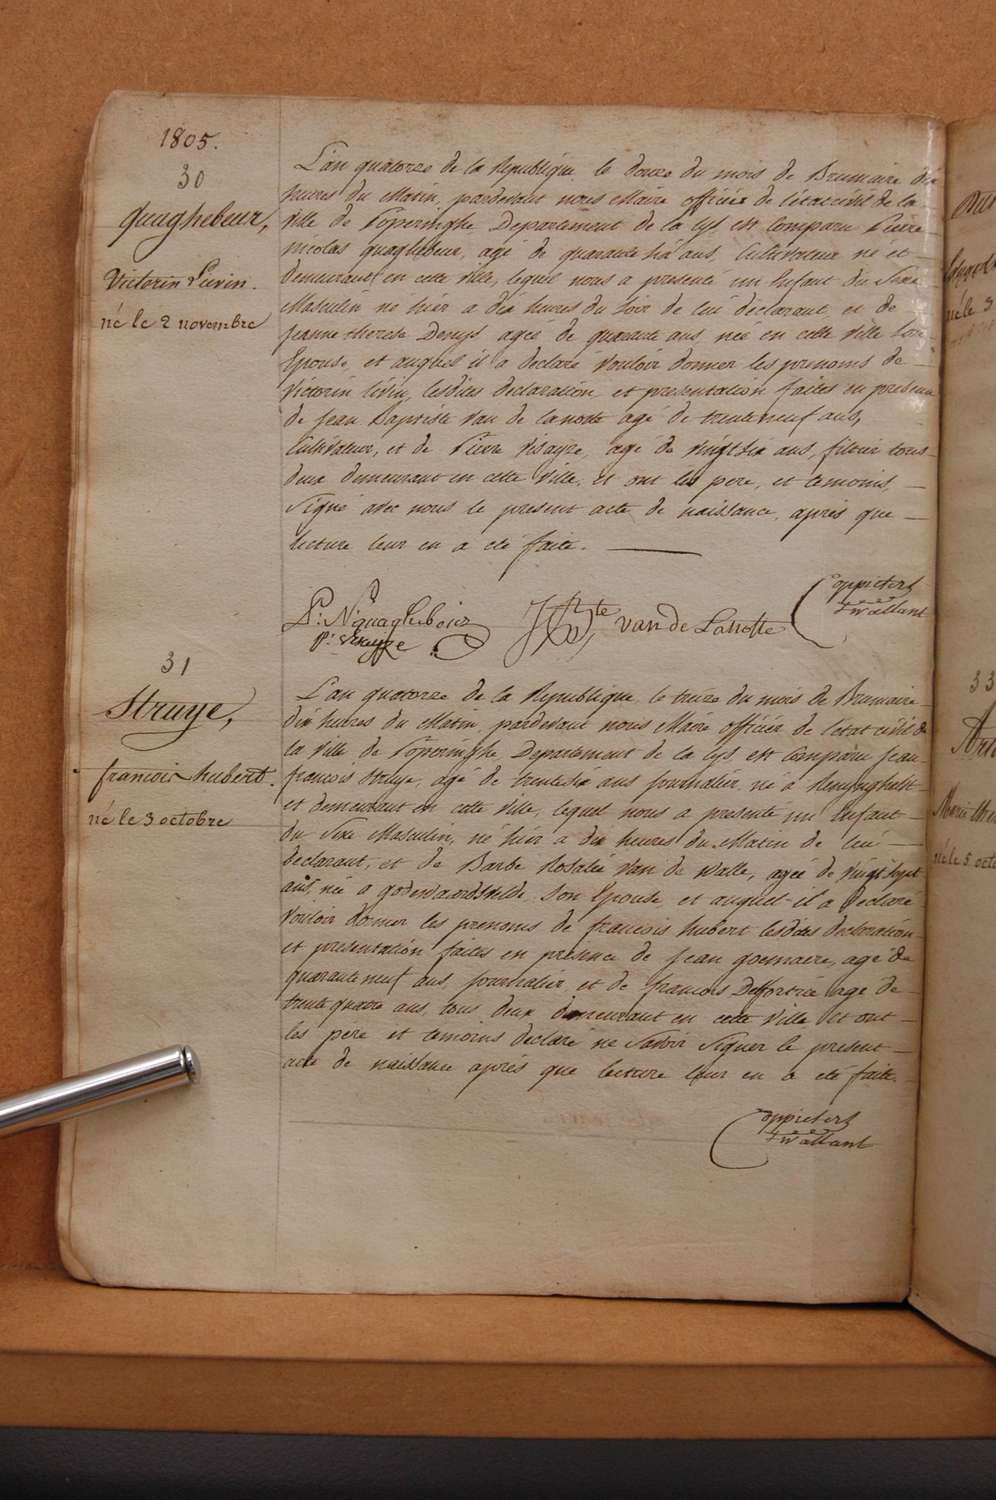 1805.
30
quaghebeur,
Victorin Lievin.
né le 2 novembre
L'an quatorze de la Republique le douze du mois de Brumaire dix
heures du Matin, pardevant nous Maire officier de l'état civil de la
Ville de Poperinghe Departement de la Lys est comparu Pierre
nicolas quaghebeur, agé de quarante six ans, Cultivateur né et
demeurant en cette ville, lequel nous a presenté un Enfant du Sexe
Masculin né hier a dix heures du Soir de lui declarant et de
jeanne therese Denys agée de quarante ans née en cette Ville Son
Epouse, et auquel il a declaré Vouloir donner les prenoms de
Victorin livin, lesdites declaration et presentation faites en presence
de jean Baptiste Van de lanotte agé de trente neuf ans,
Cultivateur, et de Pierre agé de Vingt six ans, filtier tous
deux demeurant en cette Ville, et ont les pere, et temoins,
Signé avec nous le present acte de naissance, après que
lecture leur en a été faite.
P: N: quaghebeur
JBte van de Lanotte
Coppieters
t'wallant
31
Struye,
francois hubert.
né le 3 octobre
L'an quatorze de la Republique le treize du mois de Brumaire
dix heures du Matin pardevant nous Maire officier de l'état civil de
la Ville de Poperinghe Departement de la Lys est Comparu jean
francois Struye, agé de trente six ans journalier né a Renynghelst
et demeurant en cette Ville, lequel nous a presenté un Enfant
du Sexe Masculin, né hier a dix heures du Matin de lui
declarant, et de Barbe Rosalie Van de Walle, agée de Vingt Sept
ans, née a godewaersvelde Son Epouse et auquel il a Declaré
Vouloir donner les prenoms de francois hubert lesdites declaration
et presentation faites en presence de jean goemaere, agé de
quarante neuf ans, journalier et de francois Defortrie agé de
trente quatre ans, tous deux demeurant en cette Ville et ont
les pere et temoins declaré ne Savoir Signer le present
acte de naissance après que lecture leur en a été faite
Coppieters
t'wallant
33
né le 3
né le 5 octo